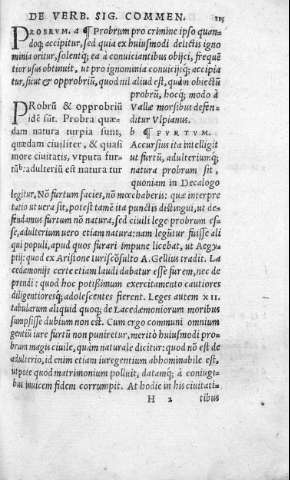 DE VERB. SIG. COMMEN. 115
PROBRVM. a ¶ Probrum pro crimine ipso quan-
doq; accipitur, sed quia ex huiusmodi delictis igno
minia oritur, solentq; ea à conuiciantibus obijci, frequē
tior usus obtinuit, ut pro ignominia conuicijq; accipia
tur, sicut & opprobriū, quod nil aliud est, quàm obiectū
probrū, hocq; modo à
Vallæ morsibus defen
ditur Vlpianus.
b ¶ FVRTVM.
Accursius ita intelligit
ut furtū, adulteriumq;
natura probrum sit,
quoniam in Decalogo
PRobrū & opprobriū
idē sūt. Probra quæ-
dam natura turpia sunt,
quædam ciuiliter, & quasi
more ciuitatis, vtputa fur-
tū: adulteriū est natura tur
legitur, Nō furtum facies, nō mœchaberis: quæ interpre
tatio ut uera sit, potest tamē ita punctis distingui, ut de-
fendamus furtum nō natura, sed ciuili lege probrum es-
se, adulterium uero etiam natura: nam legūtur fuisse ali
qui populi, apud quos furari impune licebat, ut Aegy-
ptij: quod ex Aristone iurisco͂sulto A. Gellius tradit. La
cedæmonijs certe etiam laudi dabatur esse furem, nec de
prendi: quod hoc potißimum exercitamento cautiores
diligentioresq; adolescentes fierent. Leges autem XII.
tabularum aliquid quoq; de Lacedæmoniorum moribus
sumpsisse dubium non est. Cum ergo communi omnium
gentiū iure furtū non puniretur, meritò huiusmodi pro-
brum magis ciuile, quam naturale dicitur: quod nō est de
adulterio, id enim etiam iure gentium abhominabile est,
utpote quod matrimonium polluit, datamq; à coniugi-
bus inuicem fidem corrumpit. At hodie in his ciuitati-
H 2 tibus